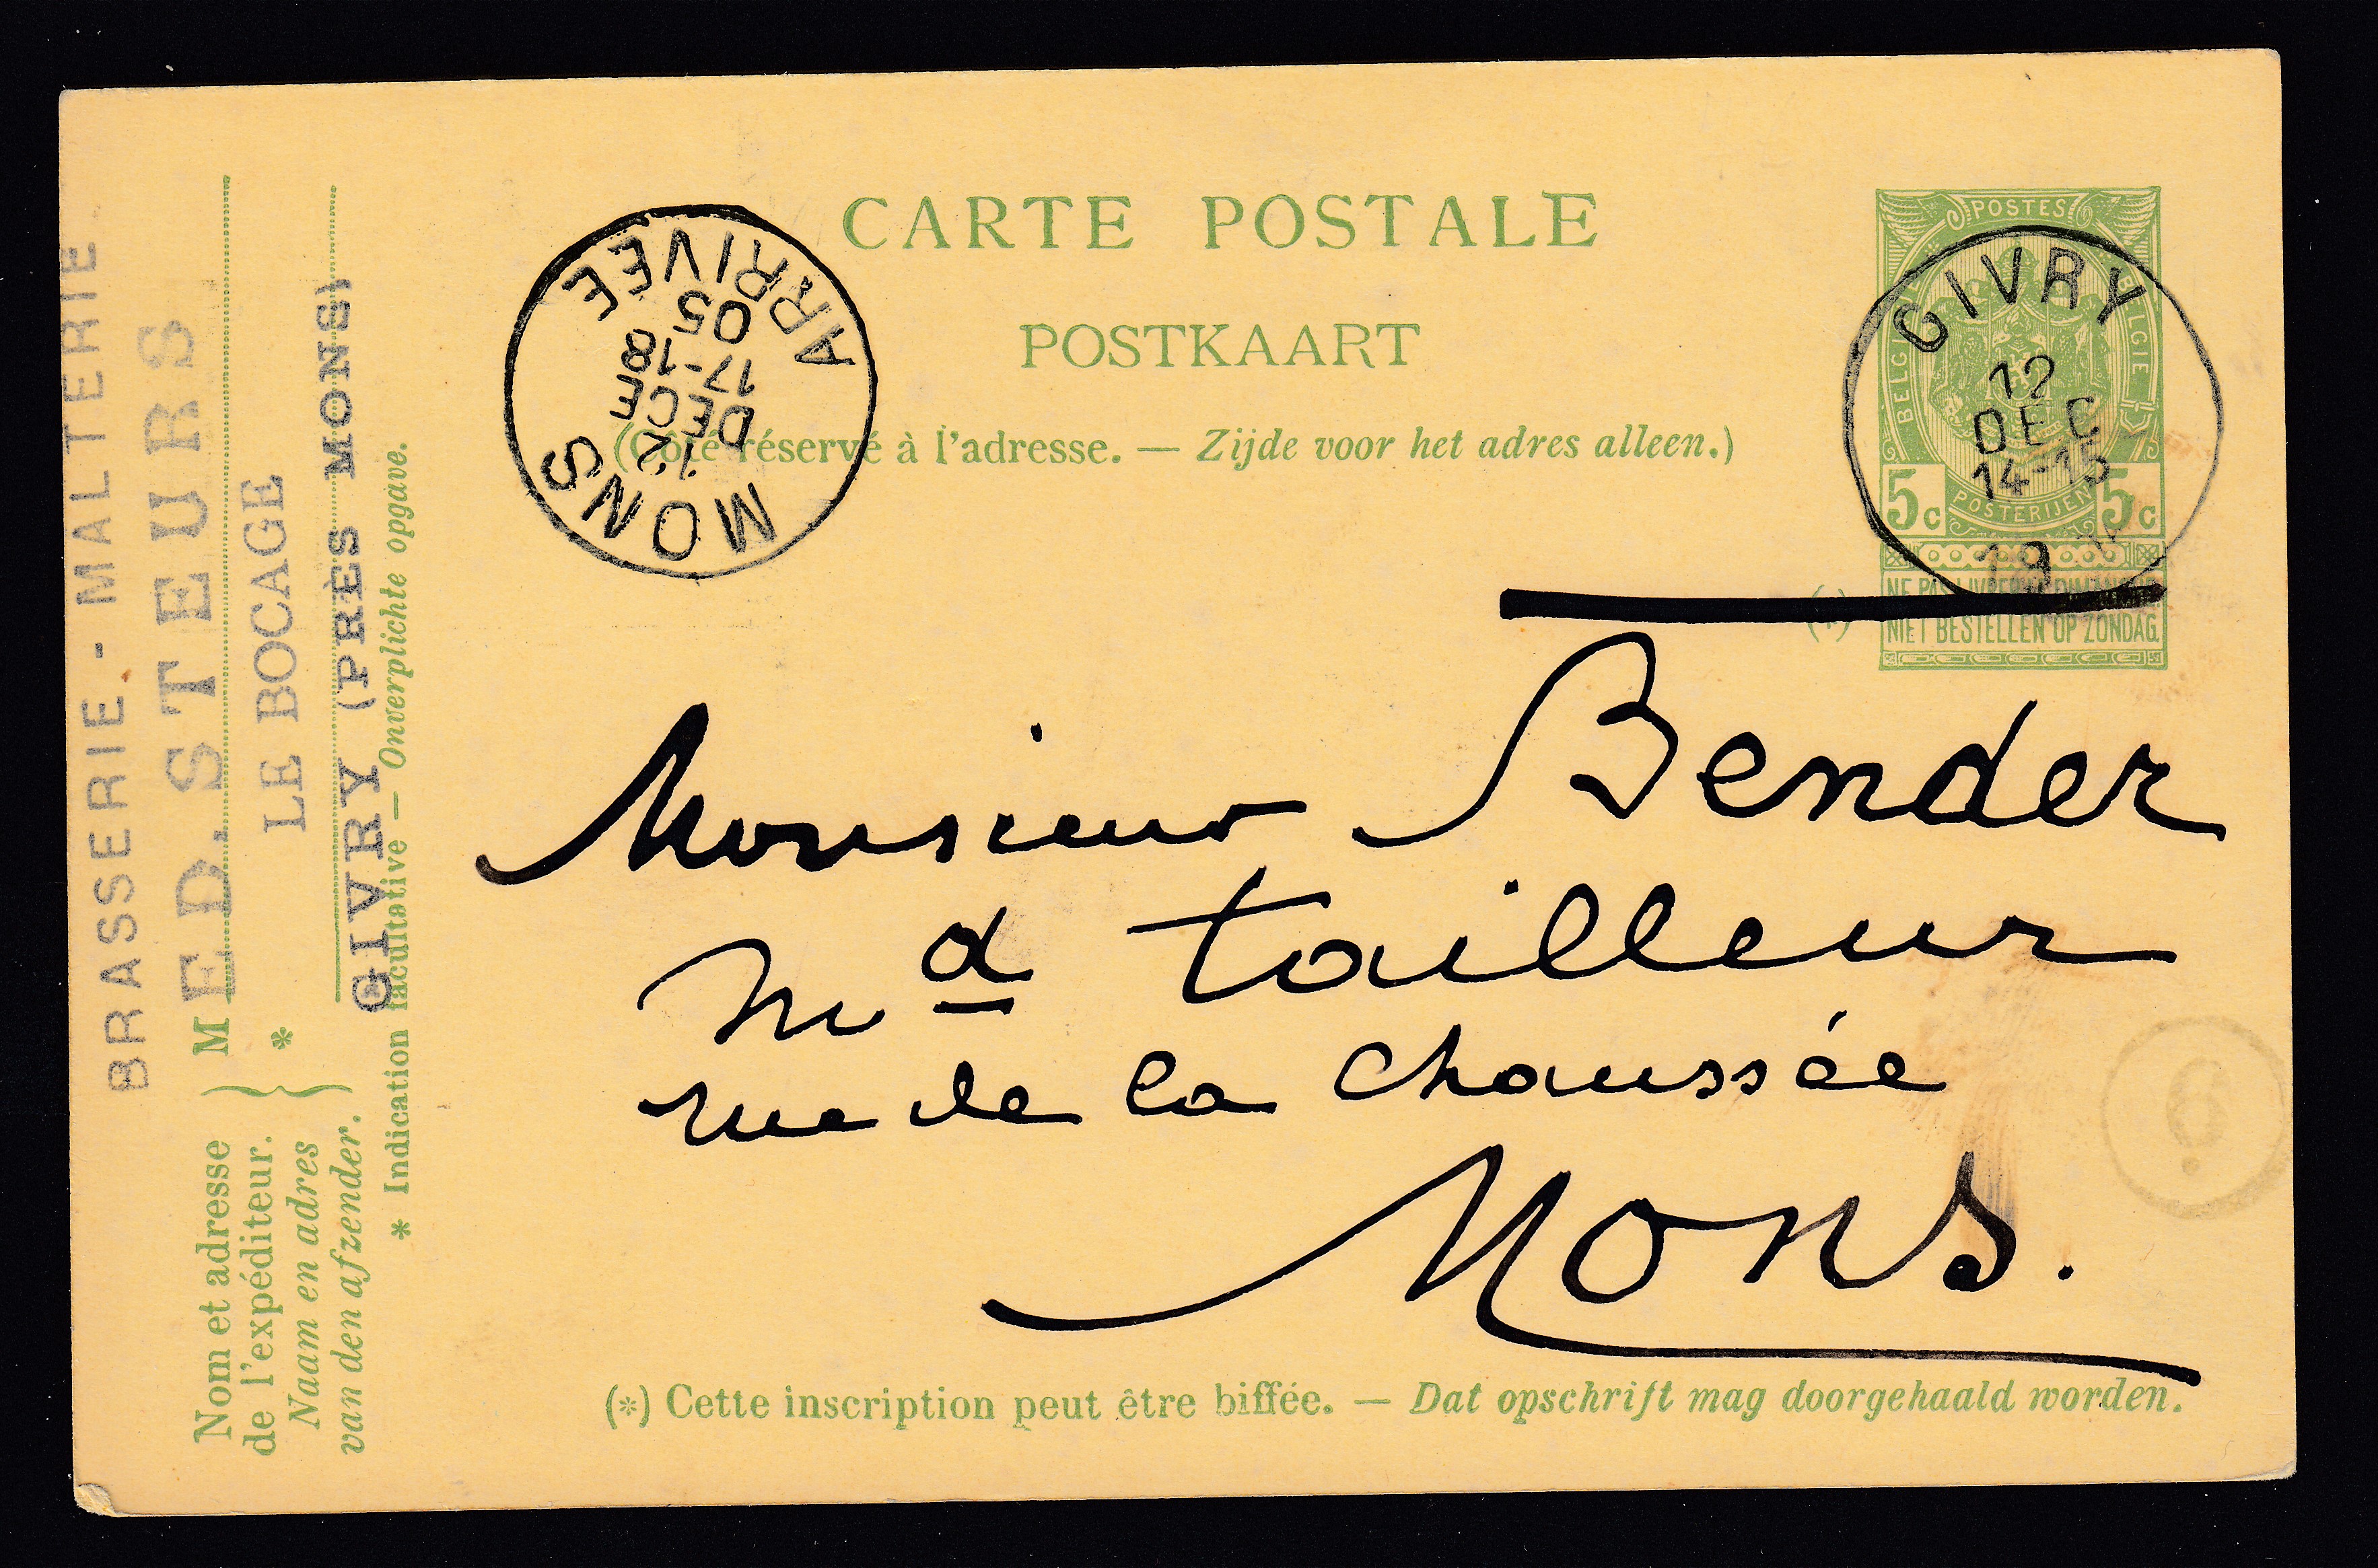 CARTE POSTALE
POSTKAART
(Côté réservé à l'adresse. — Zijde voor het adres alleen.)
MONS
12
DECE
17-18
05
ARRIVÉE
POSTES
BELGIQUE BELGIE
5c POSTERIJEN 5c
NE PAS LIVRER LE DIMANCHE
NIET BESTELLEN OP ZONDAG.
GIVRY
12
DEC
14-15
19
(*)
Monsieur Bender
Md tailleur
rue de la Chaussée
Mons.
6
(*) Cette inscription peut être biffée. — Dat opschrift mag doorgehaald worden.
BRASSERIE - MALTERIE
ED. STEURS
LE BOCAGE
GIVRY (PRÈS MONS)
Nom et adresse
de l'expéditeur.
Naam en adres
van den afzender.
M
*
* Indication facultative — Onverplichte opgave.